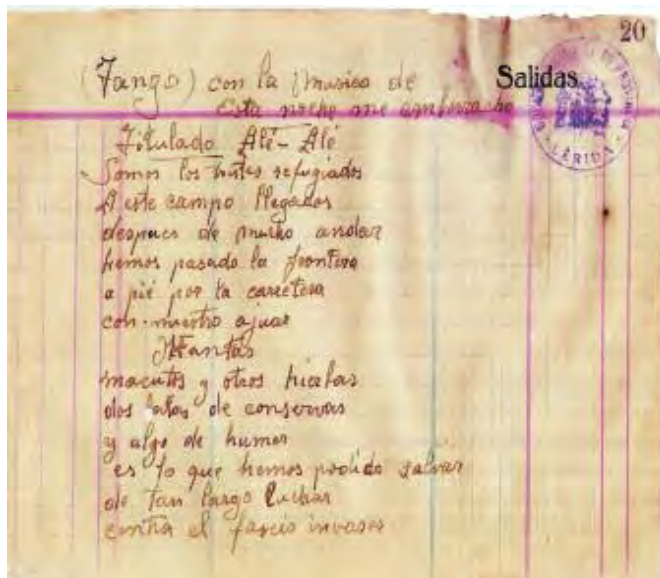 20
Salidas
(Tango) con la musica de
Esta noche me emborracho
Titulado Alé-Alé
Somos los tristes refugiados
A este campo llegados
despues de mucho andar
hemos pasado la frontera
a pié por la carretera
con nuestro ajuar
Mantas
macutos y otras hierbas
dos latas de conservas
y algo de humor
es lo que hemos podido salvar
de tan largo luchar
contra el fascio invasor
LÉRIDA